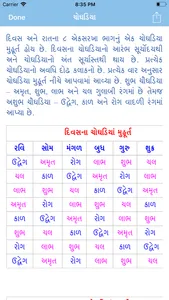 8:35 PM
Done ચોઘડિયા
દિવસ અને રાતના ૮ એકસરખા ભાગનું એક ચોઘડિયા
મુહૂર્ત હોય છે. દિવસના ચોઘડિયાનો આરંભ સૂર્યોદયથી
અને ચોઘડિયાનો અંત સૂર્યાસ્તથી થાય છે. પ્રત્યેક
ચોઘડિયાનો અવધિ દોઢ કલાકનો છે. પ્રત્યેક વાર અનુસાર
ચોઘડિયા મુહૂર્ત નીચે આપવામાં આવ્યા છે. શુભ ચૌઘડિયા
– અમૃત, શુભ, લાભ અને ચલ ગુલાબી રંગમાં છે તેમજ
અશુભ ચૌઘડિયા – ઉદ્વેગ, કાળ અને રોગ વાદળી રંગમાં
આપ્યા છે.
દિવસના ચોઘડિયાં મુહૂર્ત
રવિ સોમ મંગળ બુધ ગુરુ શુક્ર
ઉદ્વેગ અમૃત રોગ લાભ શુભ ચલ
ચલ કાળ ઉદ્વેગ અમૃત રોગ લાભ
લાભ શુભ ચલ કાળ ઉદ્વેગ અમૃત
અમૃત રોગ લાભ શુભ ચલ કાળ
કાળ ઉદ્વેગ અમૃત રોગ લાભ શુભ
શુભ ચલ કાળ ઉદ્વેગ અમૃત રોગ
રોગ લાભ શુભ ચલ કાળ ઉદ્વેગ
ઉદ્વેગ અમૃત રોગ લાભ શુભ ચલ